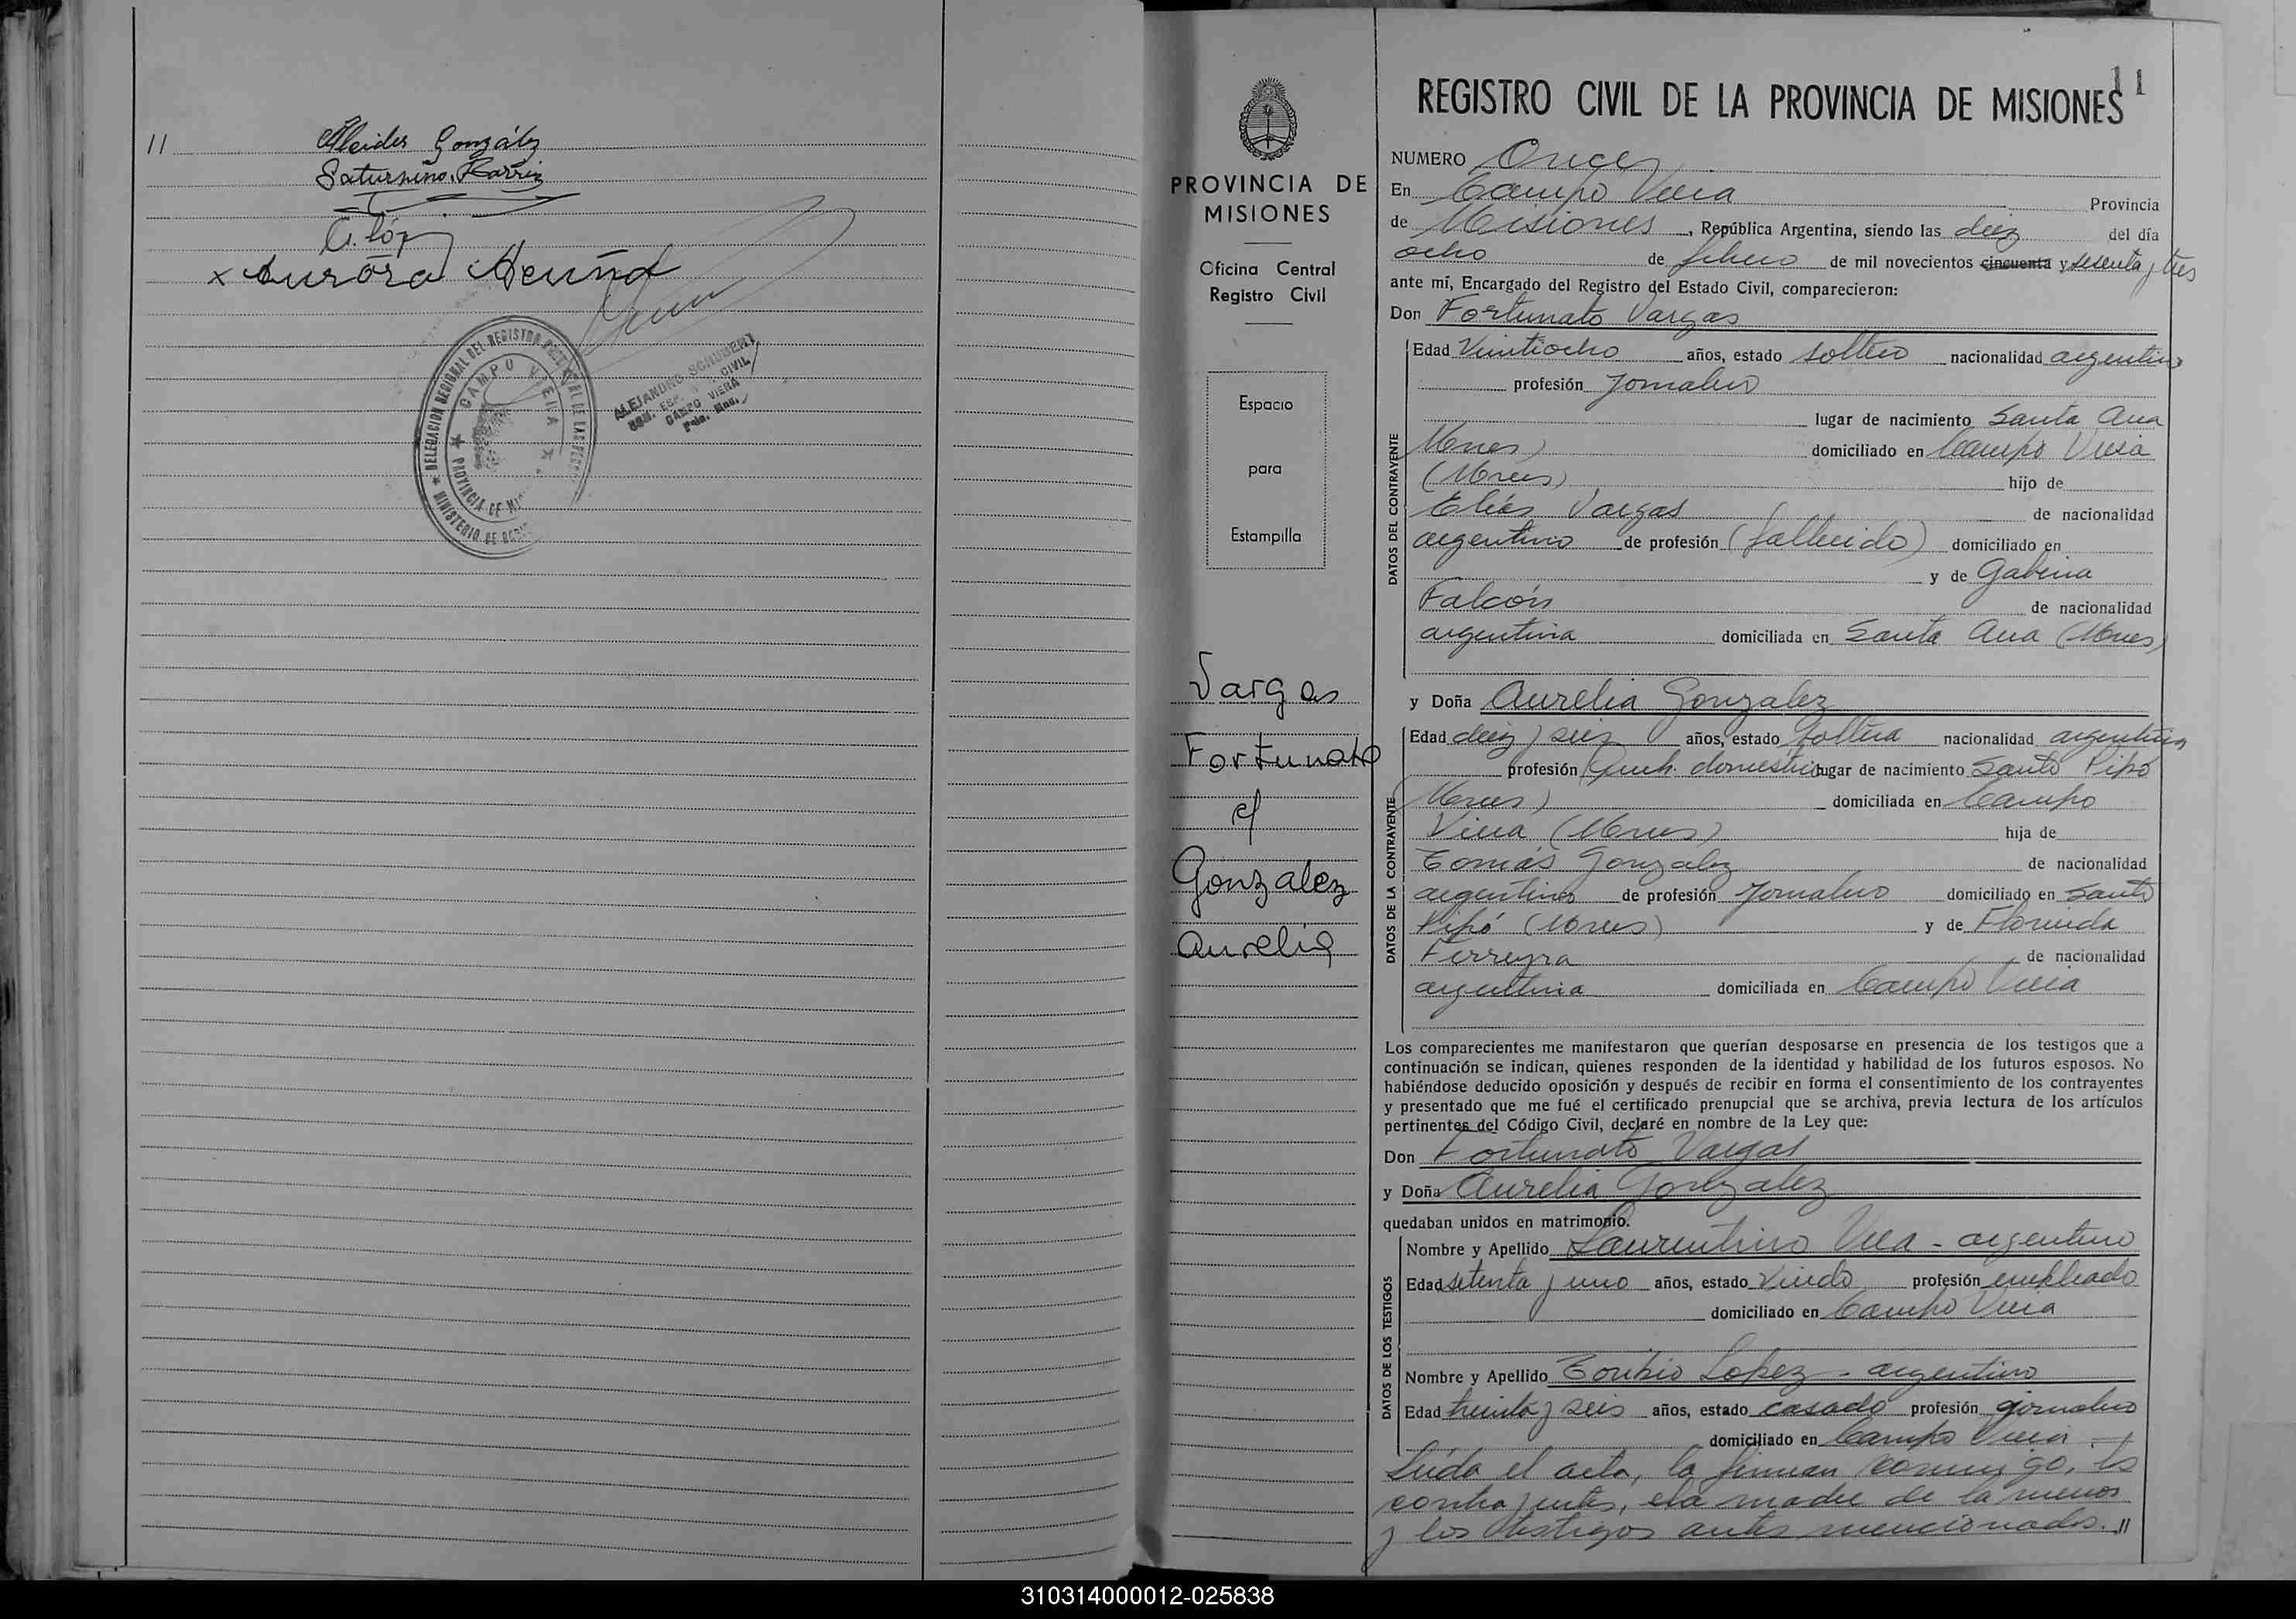 11 Alcides González
Saturnino Barrios
A. Lóp
x Aurora Acuña
DELEGACION REGIONAL DEL REGISTRO
CAMPO VIERA
PROVINCIA DE
MINISTERIO DE
ALEJANDRO SCHUBERT
CIVIL
CAMPO VIERA
PROVINCIA DE
MISIONES
Oficina Central
Registro Civil
Espacio
para
Estampilla
Vargas
Fortunato
c/
Gonzalez
Aurelia
11
REGISTRO CIVIL DE LA PROVINCIA DE MISIONES
NUMERO Once
En Campo Viera Provincia
de Misiones, República Argentina, siendo las diez del día
ocho de febrero de mil novecientos cincuenta y sesenta y tres
ante mí, Encargado del Registro del Estado Civil, comparecieron:
Don Fortunato Vargas
DATOS DEL CONTRAYENTE
Edad Veintiocho años, estado soltero nacionalidad argentino
profesión Jornalero
lugar de nacimiento Santa Ana
Mnes) domiciliado en Campo Viera
(Mnes) hijo de
Elías Vargas de nacionalidad
argentino de profesión (fallecido) domiciliado en
y de Gabina
Falcón de nacionalidad
argentina domiciliada en Santa Ana (Mnes)
y Doña Aurelia Gonzalez
DATOS DE LA CONTRAYENTE
Edad diez y seis años, estado soltera nacionalidad argentina
profesión Queh. domésticos lugar de nacimiento Santo Pipó
(Mnes) domiciliada en Campo
Viera (Mnes) hija de
Tomás Gonzalez de nacionalidad
argentino de profesión Jornalero domiciliado en Santo
Pipó (Mnes) y de Florinda
Ferreyra de nacionalidad
argentina domiciliada en Campo Viera
Los comparecientes me manifestaron que querían desposarse en presencia de los testigos que a
continuación se indican, quienes responden de la identidad y habilidad de los futuros esposos. No
habiéndose deducido oposición y después de recibir en forma el consentimiento de los contrayentes
y presentado que me fué el certificado prenupcial que se archiva, previa lectura de los artículos
pertinentes del Código Civil, declaré en nombre de la Ley que:
Don Fortunato Vargas
y Doña Aurelia Gonzalez
quedaban unidos en matrimonio.
DATOS DE LOS TESTIGOS
Nombre y Apellido Laurentino Vera - argentino
Edad setenta y uno años, estado Viudo profesión empleado
domiciliado en Campo Viera
Nombre y Apellido Toribio Lopez - argentino
Edad treinta y seis años, estado casado profesión jornalero
domiciliado en Campo Viera.-
Leída el acta, la firman conmigo, los
contrayentes, la madre de la menor
y los testigos antes mencionados.-//
310314000012-025838